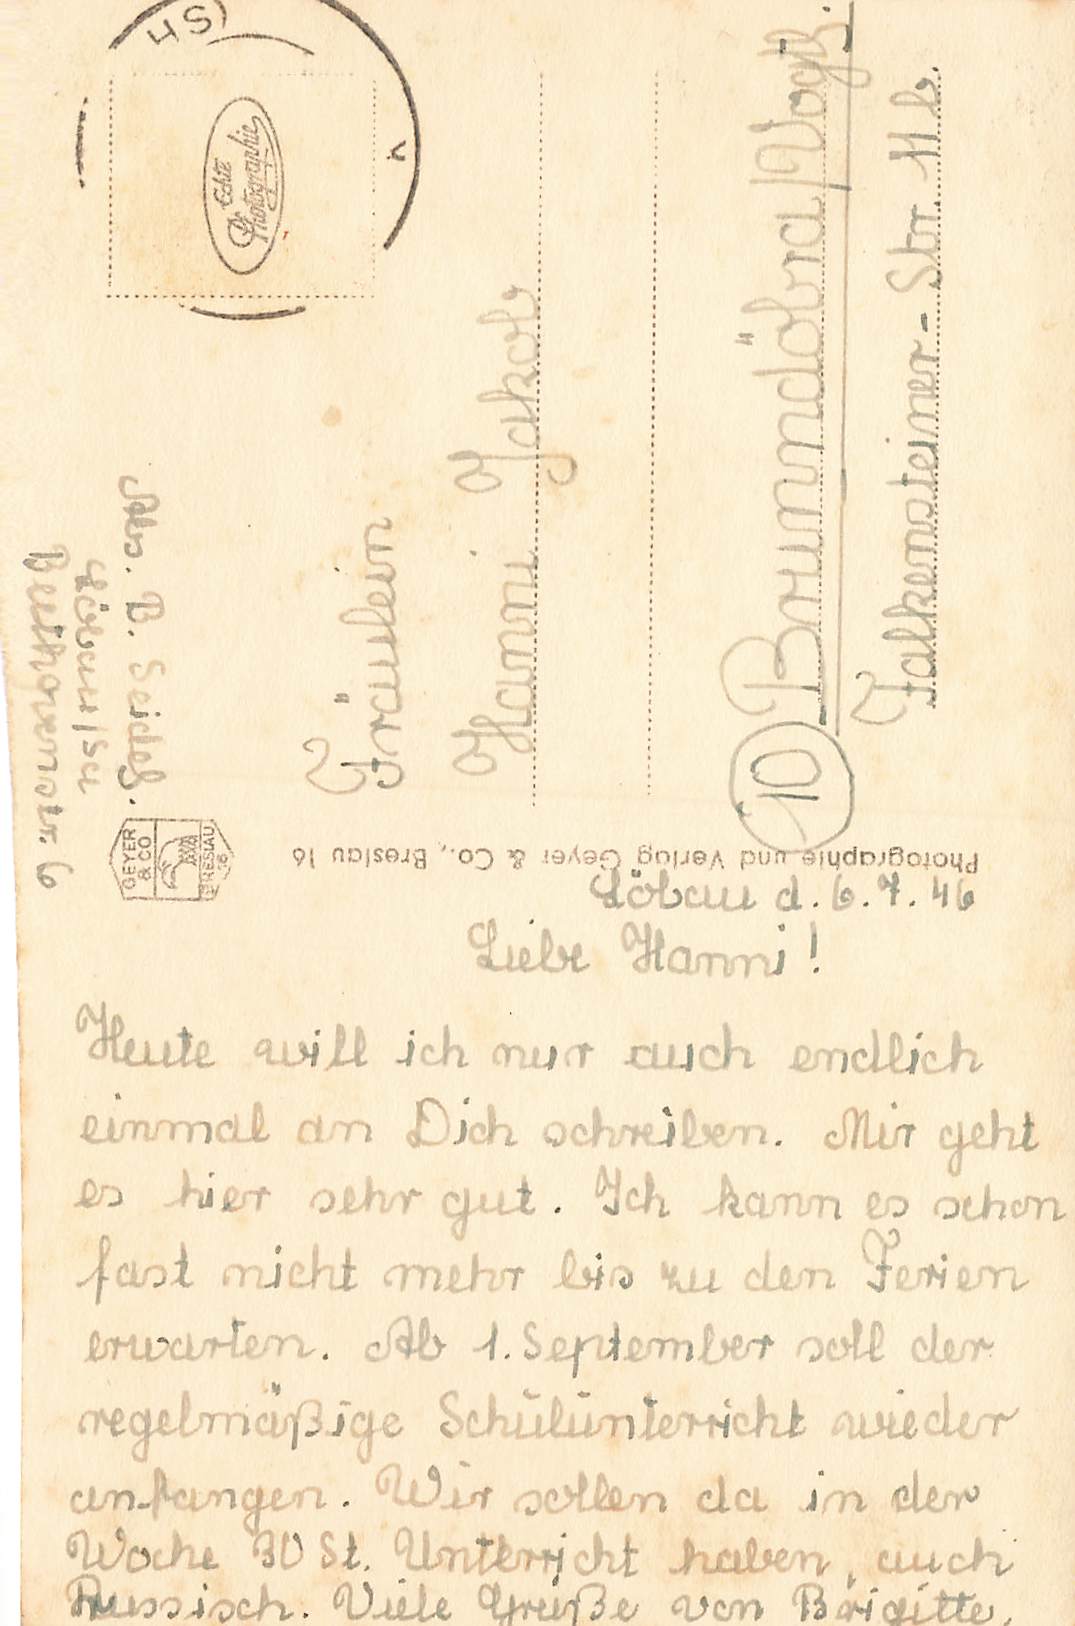 Echte
Photographie
Abs. B. Seidel.
Löbau/Sa
Beethovenstr. 6
Fräulein
Hanni Jakob
10 Brunndöbra/Vogtl.
Falkensteiner-Str. 11b.
GEYER
& CO
BRESLAU
16
Photographie und Verlag Geyer & Co., Breslau 16
Löbau d. 6.7.46
Liebe Hanni!
Heute will ich nur auch endlich
einmal an Dich schreiben. Mir geht
es hier sehr gut. Ich kann es schon
fast nicht mehr bis zu den Ferien
erwarten. Ab 1. September soll der
regelmäßige Schulunterricht wieder
anfangen. Wir sollen da in der
Woche 30 St. Unterricht haben, auch
Russisch. Viele Grüße von Brigitte.